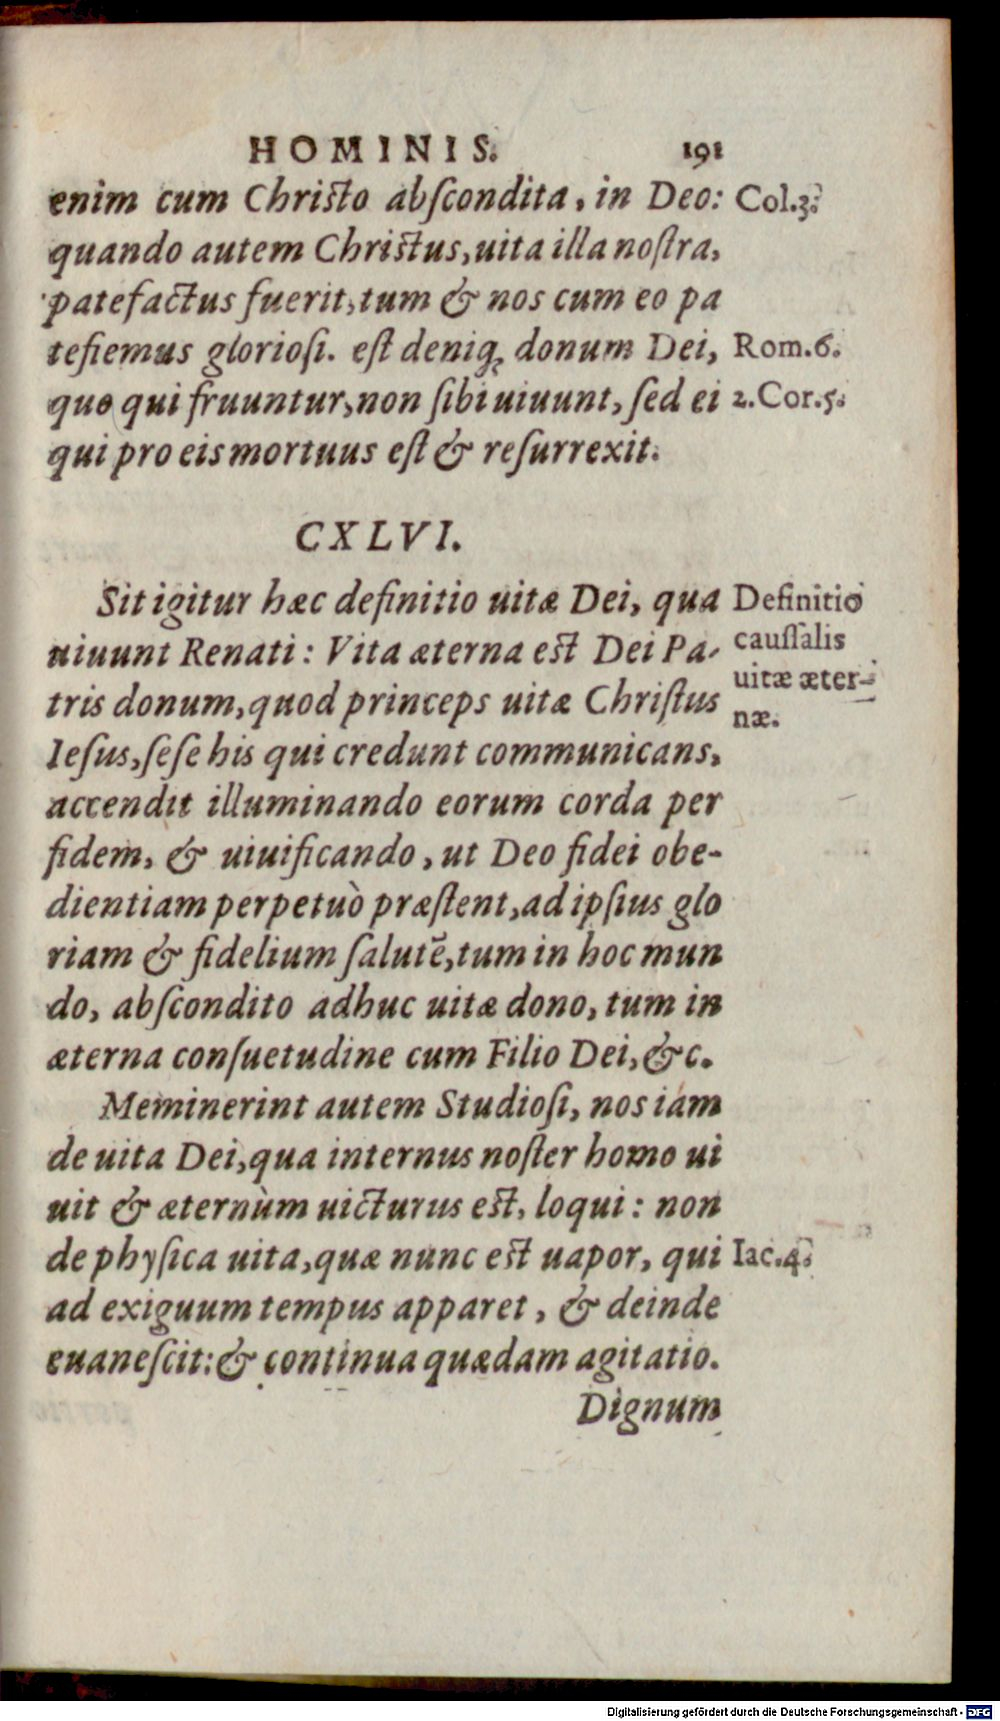 HOMINIS. 191
enim cum Christo abſcondita, in Deo: Col.3.
quando autem Christus, uita illa noſtra,
patefactus fuerit, tum & nos cum eo pa
tefiemus glorioſi. eſt deniq; donum Dei, Rom.6.
quo qui fruuntur, non ſibi uiuunt, ſed ei 2.Cor.5.
qui pro eis mortuus eſt & reſurrexit.
CXLVI.
Sit igitur hæc definitio uitæ Dei, qua Definitio
uiuunt Renati: Vita æterna est Dei Pa- cauſſalis
tris donum, quod princeps uitæ Chriſtus uitæ æter-
næ.
Ieſus, ſeſe his qui credunt communicans,
accendit illuminando eorum corda per
fidem, & uiuificando, ut Deo fidei obe-
dientiam perpetuò præſtent, ad ipſius glo
riam & fidelium ſalutē, tum in hoc mun
do, abſcondito adhuc uitæ dono, tum in
æterna conſuetudine cum Filio Dei, &c.
Meminerint autem Studioſi, nos iam
de uita Dei, qua internus noſter homo ui
uit & æternùm uicturus est, loqui: non
de phyſica uita, quæ nunc est uapor, qui Iac.4.
ad exiguum tempus apparet, & deinde
euaneſcit: & continua quædam agitatio.
Dignum
Digitalisierung gefördert durch die Deutsche Forschungsgemeinschaft - DFG